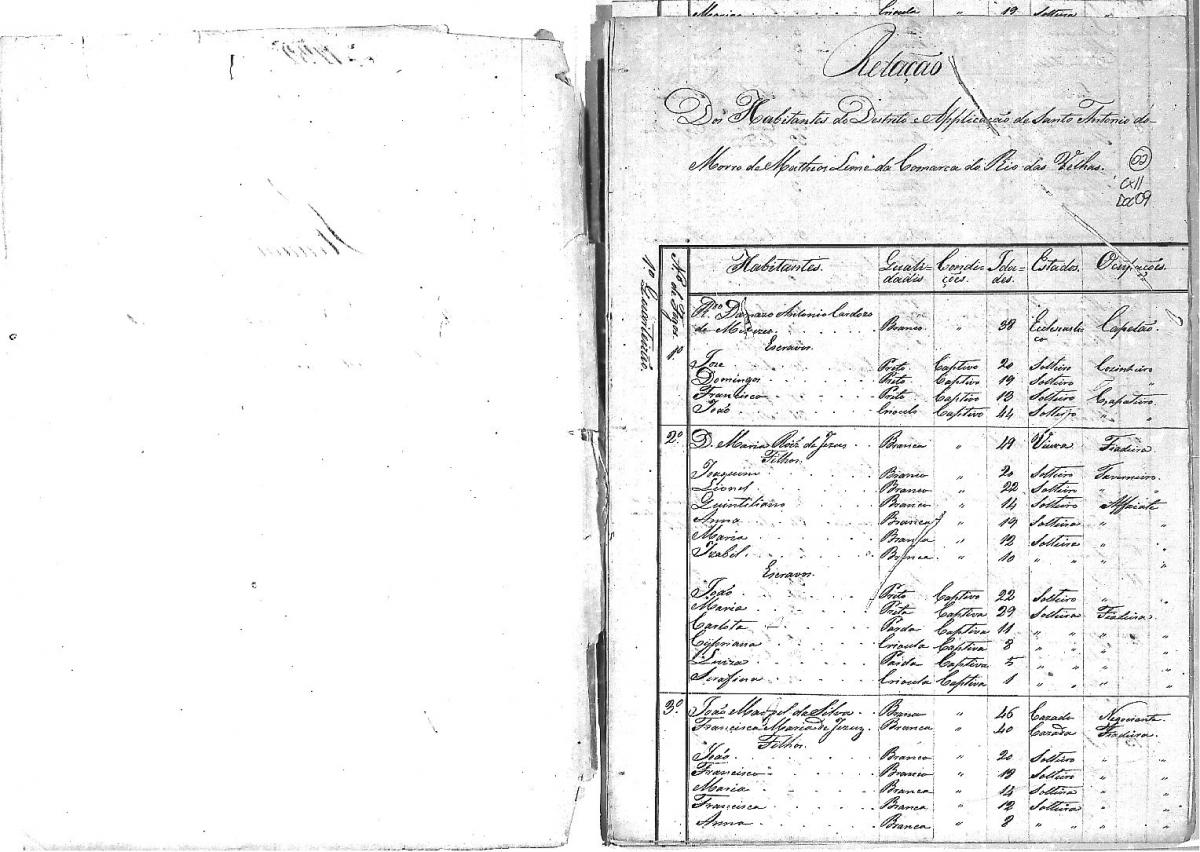 Maria Crioula " 19 Solteira "
Relação
Dos Habitantes do Destrito e Applicação de Santo Antonio do
Morro de Matheos Leme da Comarca do Rio das Velhas.
02
CXII
Doc 09
1º Quarteirão
Nos de Fogos. Habitantes. Quali- Condi- Ida- Estados. Ocupações.
dades ções. des.
1º Rdo Damazo Antonio Cardozo
de Branco " 38 Eccleziasti Capelão.
co
Escravos.
Joze Preto Captivo 20 Solteiro Cozinheiro
Domingos Preto Captivo 19 Solteiro "
Francisco Preto Captivo 13 Solteiro Çapateiro
João Crioulo Captivo 44 Solteiro " "
2º D. Maria Roiz de Jezus Branca " 49 Viuva Fiadeira
Filhos.
Joaquim Branco " 20 Solteiro Taverneiro.
Lionel Branco " 22 Solteiro " "
Quintiliano Branco " 14 Solteiro Alfaiate
Anna Branca " 19 Solteira " "
Maria Branca " 12 Solteira " "
Izabel Branca " 10 " " " "
Escravos.
João Preto Captivo 22 Solteiro " "
Maria Preta Captiva 29 Solteira Fiadeira
Carlota Parda Captiva 11 " " " "
Cypriana Crioula Captiva 8 " " " "
Luiza Parda Captiva 5 " " " "
Serafina Crioula Captiva 1 " " " "
3º João Manoel da Silva Branco " 46 Cazado Negociante
Francisca Maria de Jezuz Branca " 40 Cazada Fiadeira.
Filhos.
João Branco " 20 Solteiro " "
Francisco Branco " 19 Solteiro " "
Maria Branca " 14 Solteira " "
Francisca Branca " 12 Solteira " "
Anna Branca " 8 " " " "